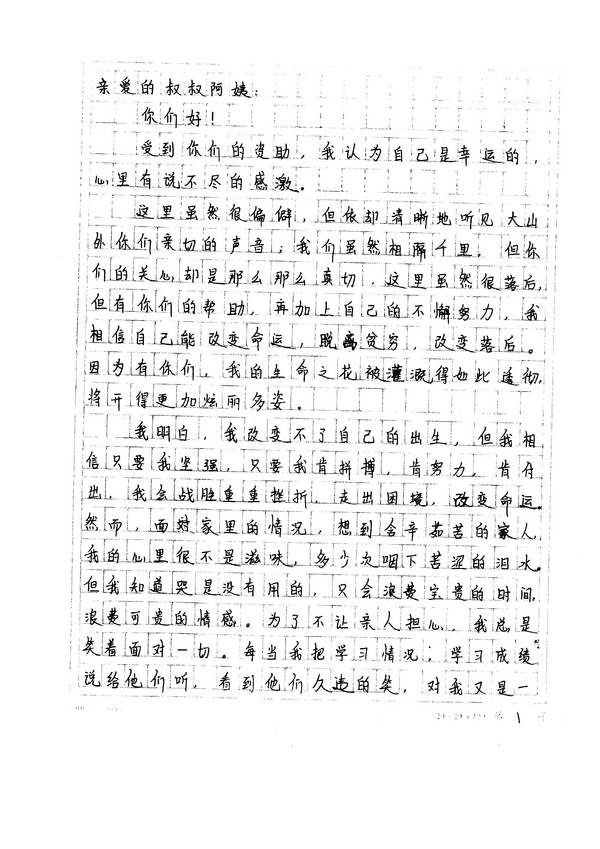 亲爱的叔叔阿姨：
你们好！
受到你们的资助，我认为自己是幸运的，
心里有说不尽的感激。
这里虽然很偏僻，但依却清晰地听见大山
外你们亲切的声音；我们虽然相隔千里，但你
们的关心却是那么那么真切，这里虽然很落后，
但有你们的帮助，再加上自己的不懈努力，我
相信自己能改变命运，脱离贫穷，改变落后。
因为有你们，我的生命之花被灌溉得如此透彻，
将开得更加炫丽多姿。
我明白，我改变不了自己的出生，但我相
信只要我坚强，只要我肯拼搏，肯努力，肯付
出，我会战胜重重挫折，走出困境，改变命运。
然而，面对家里的情况，想到含辛茹苦的家人，
我的心里很不是滋味，多少次咽下苦涩的泪水。
但我知道哭是没有用的，只会浪费宝贵的时间，
浪费可贵的情感。为了不让亲人担心，我总是
笑着面对一切。每当我把学习情况，学习成绩
说给他们听，看到他们久违的笑，对我又是一
第 1 页